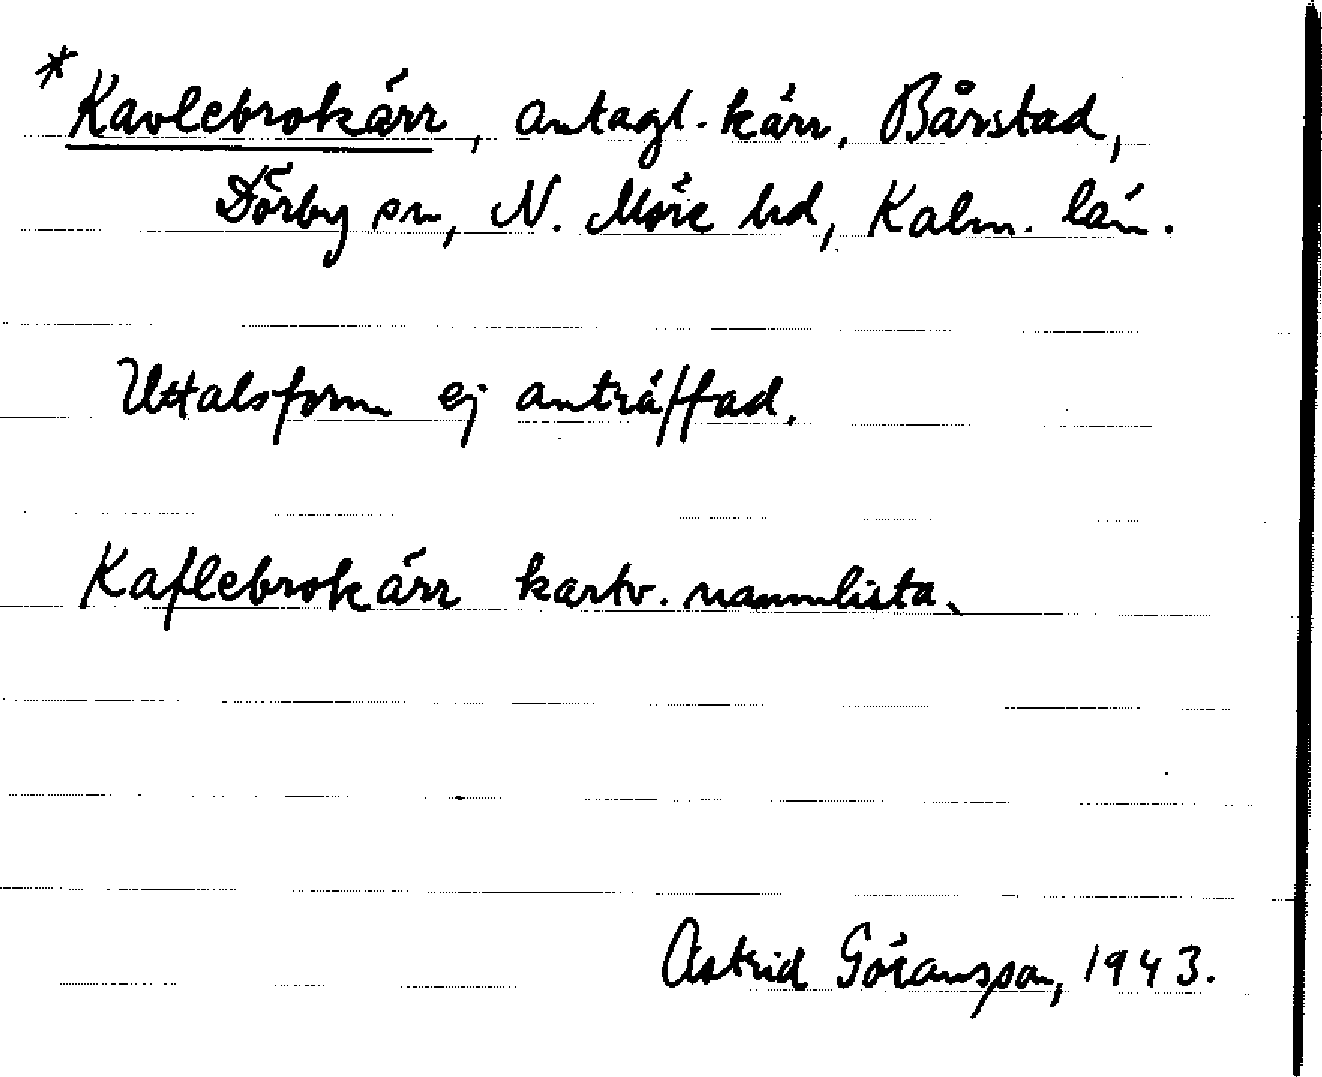 *Kavlebrokärr, antagl. kärr, Bårstad,
Dörby sn, N. Möre hd, Kalm. län.
Uttalsform ej anträffad.
Kaflebrokärr kartv. namnlista.
Astrid Göransson, 1943.